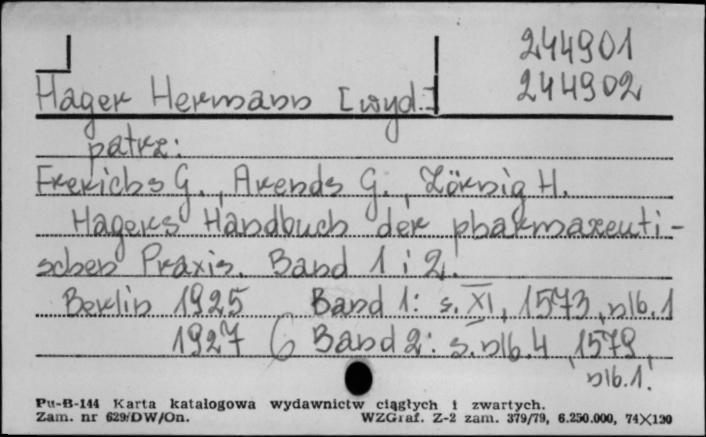 244901
244902
Hager Hermann [wyd.]
patrz:
Frerichs G., Arends G., Zörnig H.
Hagers Handbuch der pharmazeuti-
schen Praxis. Band 1 i 2.
Berlin 1925 Band 1: s. XI, 1573, nlb. 1
1927 Band 2: s. nlb. 4, 1579,
nlb. 1.
Pu-B-144 Karta katalogowa wydawnictw ciągłych i zwartych.
Zam. nr 629/DW/On. WZGraf. Z-2 zam. 379/79, 6.250.000, 74X120